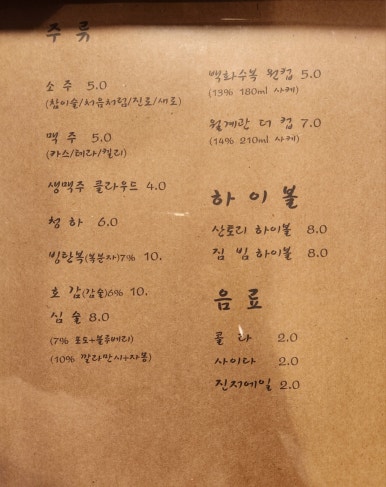 주 류
소 주 5.0
(참이슬/처음처럼/진로/새로)
맥 주 5.0
(카스/테라/켈리)
생맥주 클라우드 4.0
청 하 6.0
빙탄복(복분자)7% 10.
호 감(감술)6% 10.
심 술 8.0
(7% 포도+블루베리)
(10% 깔라만시+자몽)
백화수복 원컵 5.0
(13% 180ml 사케)
월계관 더 컵 7.0
(14% 210ml 사케)
하 이 볼
산토리 하이볼 8.0
짐 빔 하이볼 8.0
음 료
콜 라 2.0
사이다 2.0
진저에일 2.0